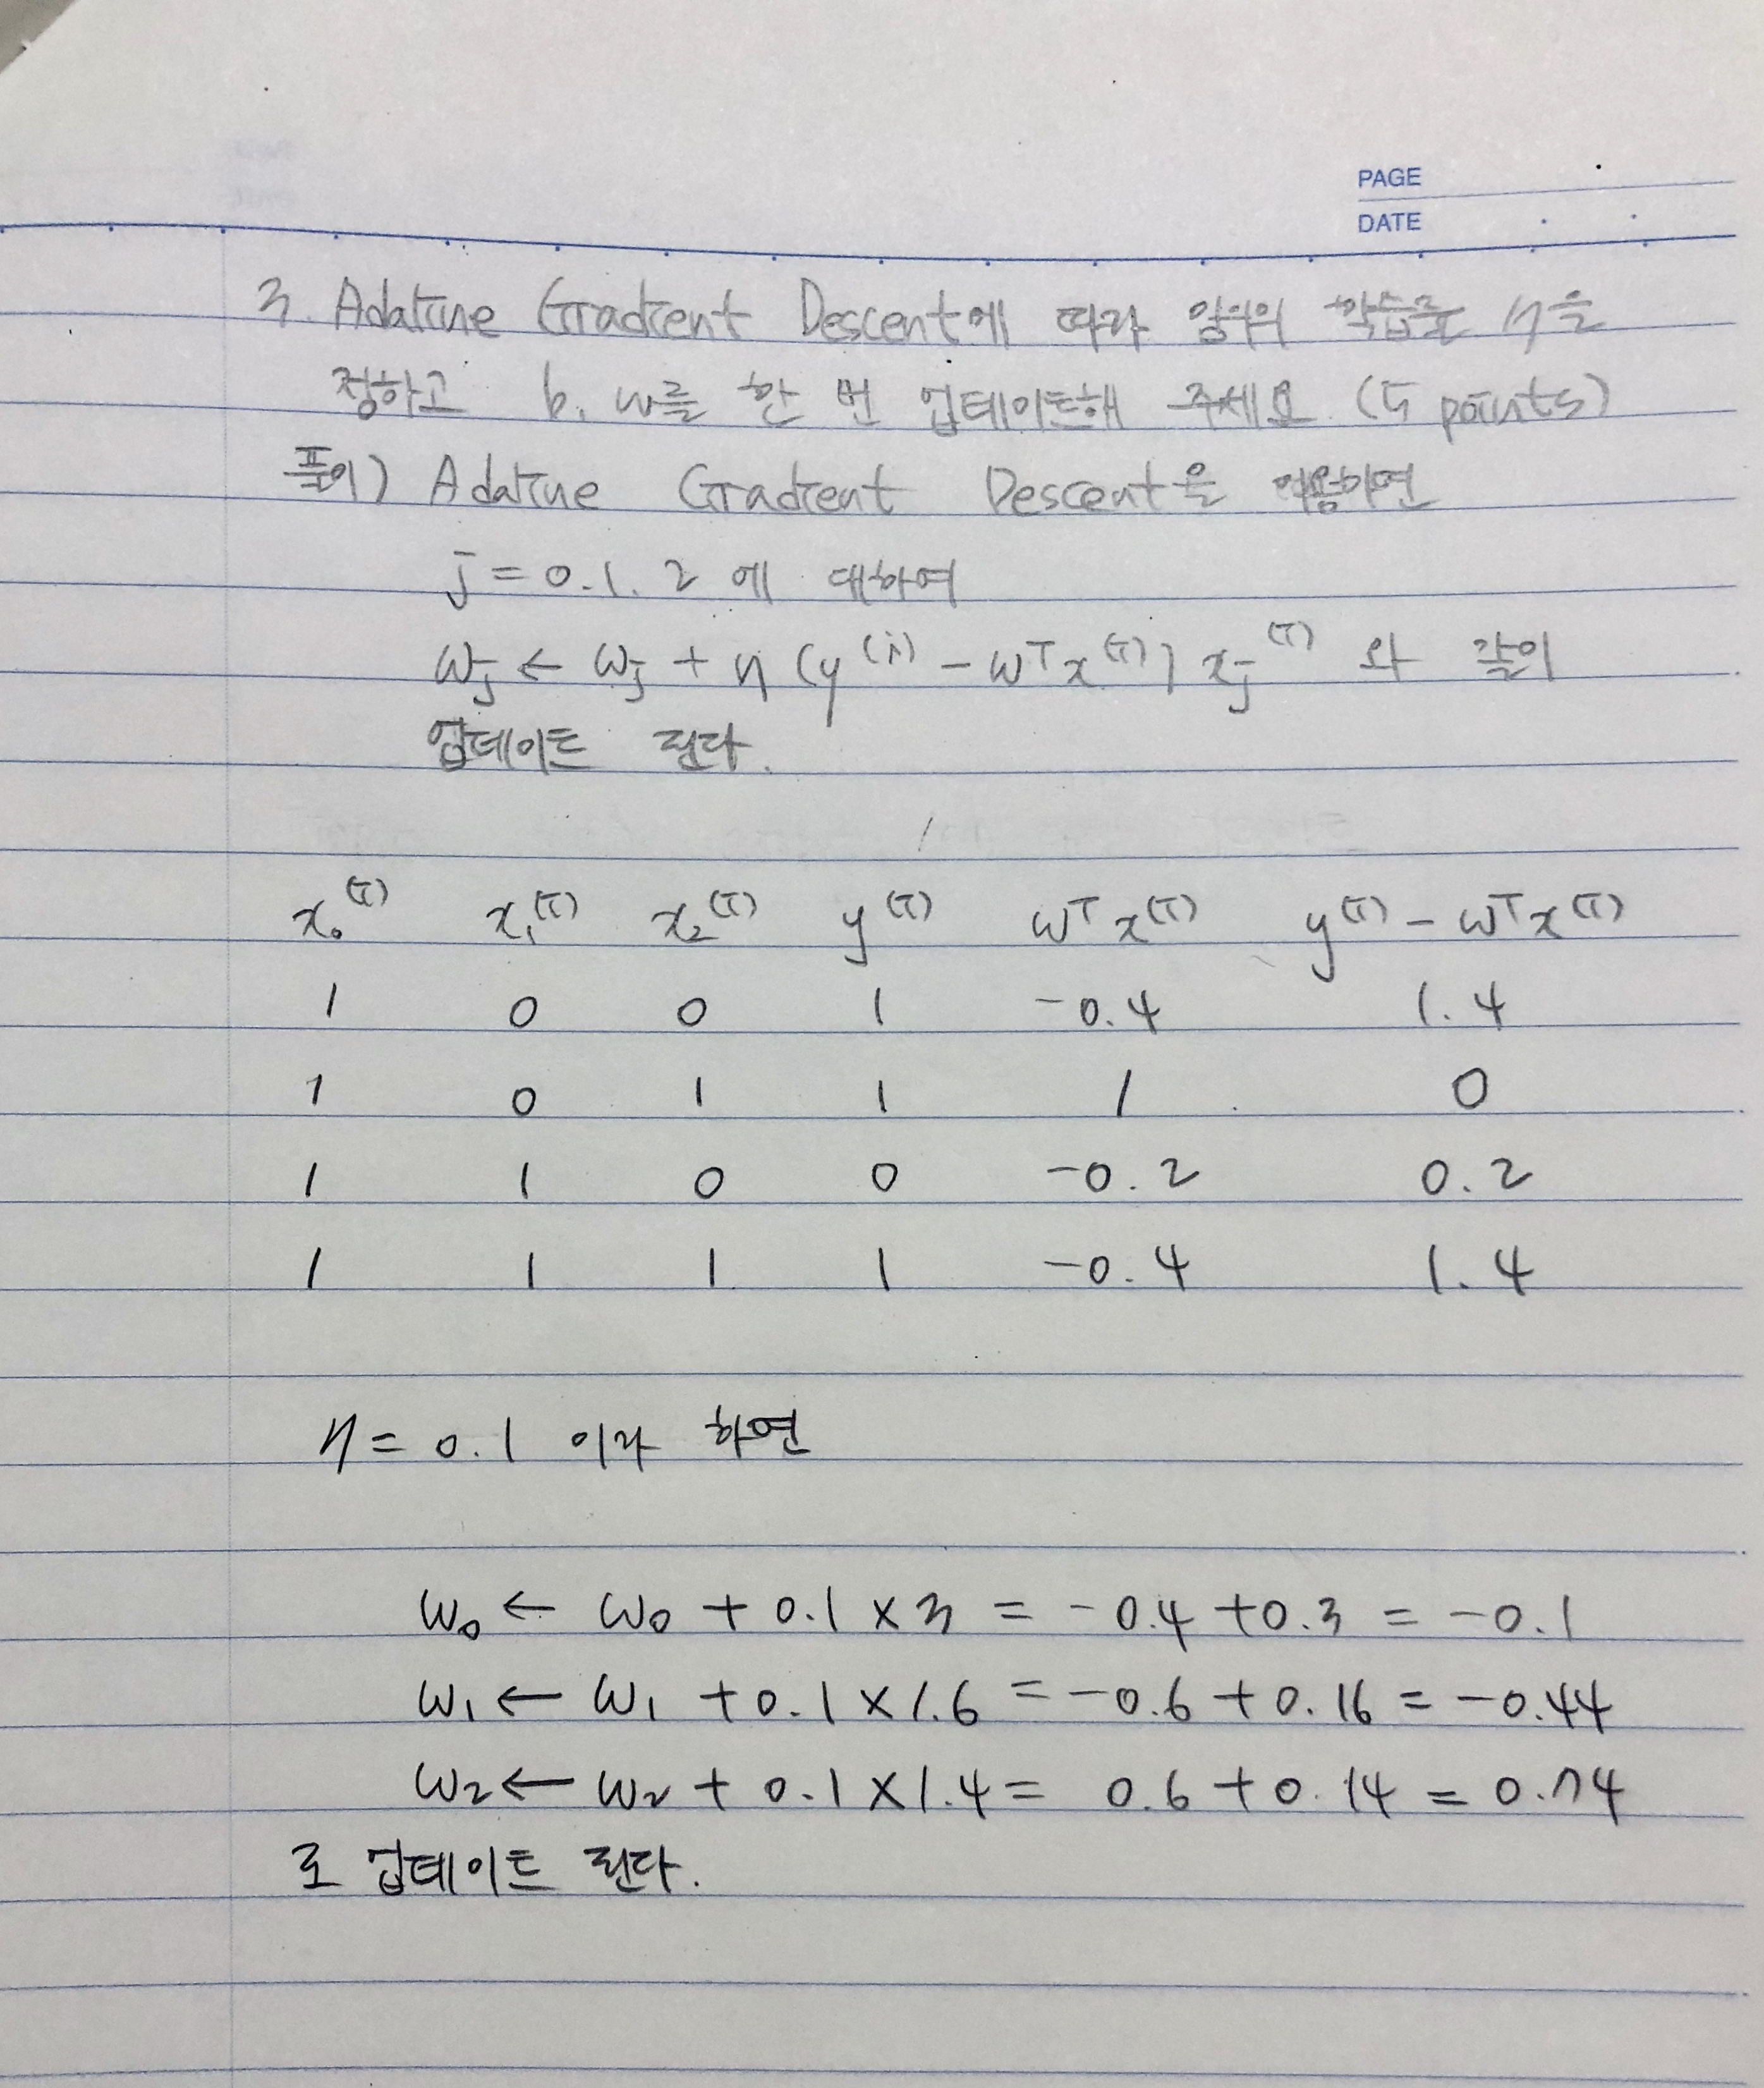 PAGE
DATE
3. Adaline Gradient Descent에 따라 임의의 학습률 η을
정하고 b, w를 한 번 업데이트해 주세요 (5 points)
풀이) Adaline Gradient Descent을 이용하면
j = 0. 1. 2 에 대하여
wⱼ ← wⱼ + η (y⁽ⁱ⁾ - wᵀx⁽ⁱ⁾) xⱼ⁽ⁱ⁾ 와 같이
업데이트 된다.
x₀⁽ⁱ⁾ x₁⁽ⁱ⁾ x₂⁽ⁱ⁾ y⁽ⁱ⁾ wᵀx⁽ⁱ⁾ y⁽ⁱ⁾ - wᵀx⁽ⁱ⁾
1 0 0 1 -0.4 1.4
1 0 1 1 1 0
1 1 0 0 -0.2 0.2
1 1 1 1 -0.4 1.4
η = 0.1 이라 하면
w₀ ← w₀ + 0.1 × 3 = -0.4 + 0.3 = -0.1
w₁ ← w₁ + 0.1 × 1.6 = -0.6 + 0.16 = -0.44
w₂ ← w₂ + 0.1 × 1.4 = 0.6 + 0.14 = 0.74
로 업데이트 된다.